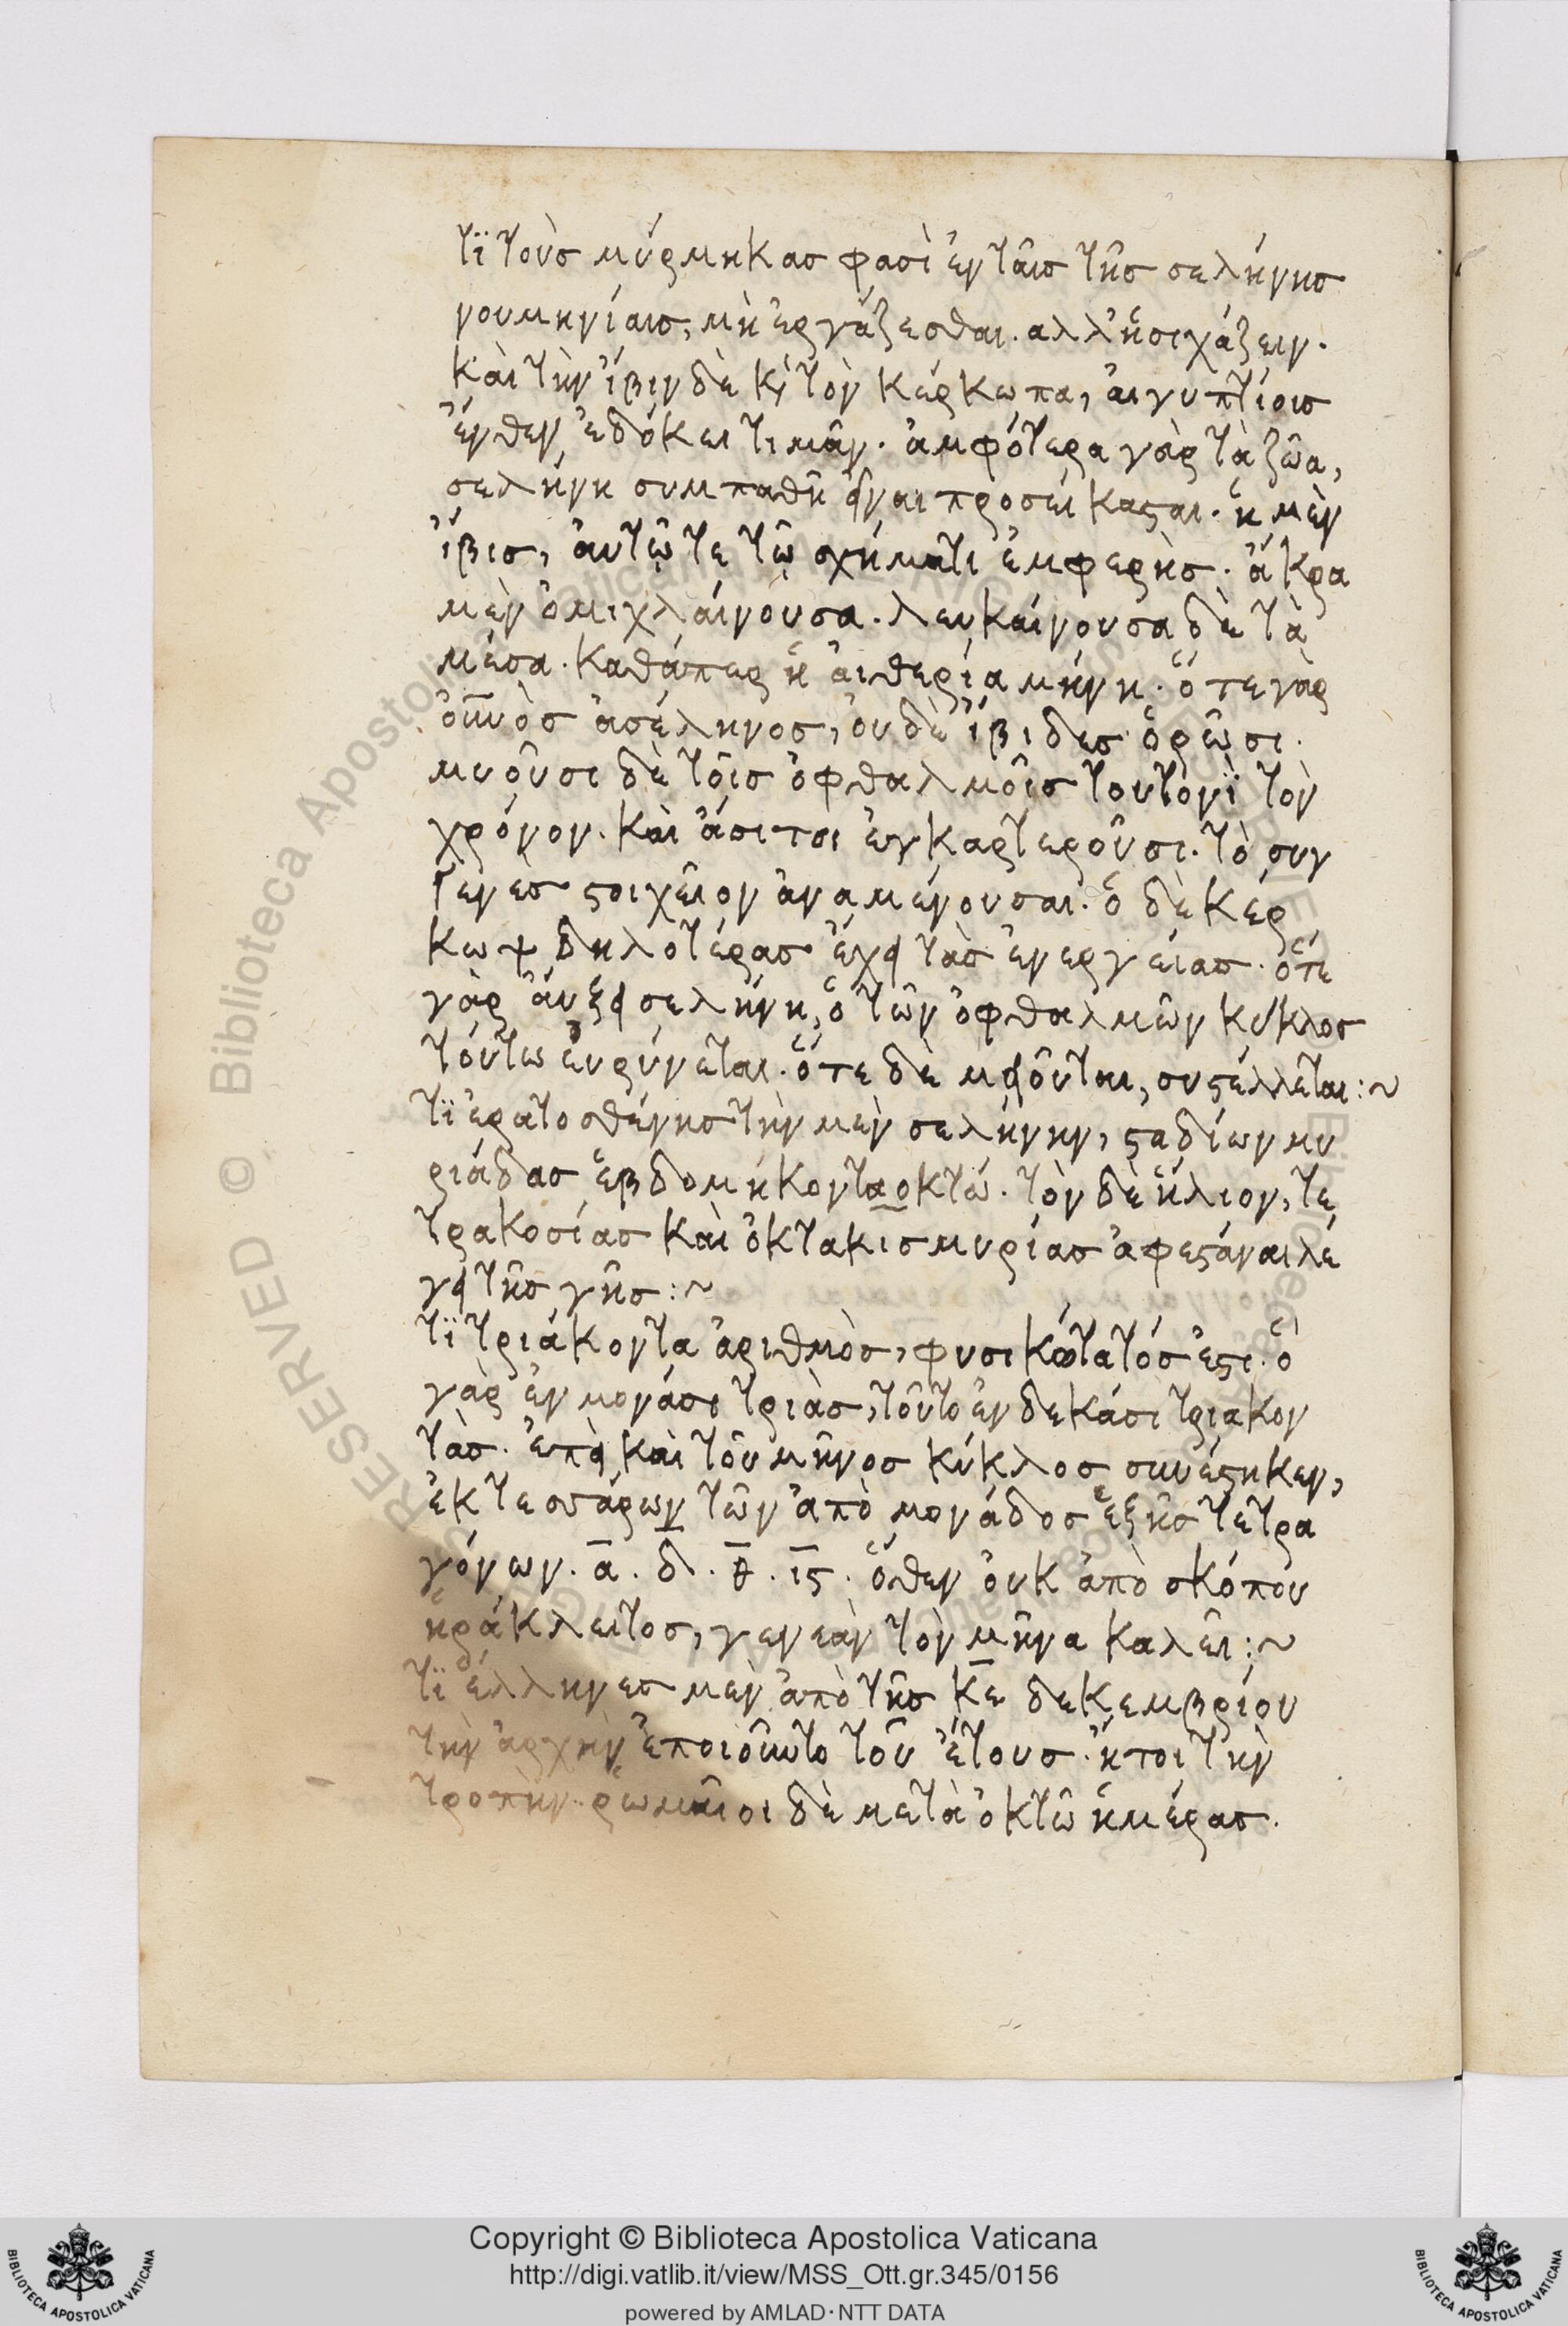 τϊ τοὺς μύρμηκας φασὶ ἐν ταῖς τῆς σελήνης
νουμηνίαις, μὴ ἐργάζεσθαι. αλλ' ἡσιχάζειν.
καὶ τὴν ἴβιν δὲ κ̀ τὸν κέρκωπα, ἀιγυπτίοις
ἔνθεν ἐδόκει τιμᾶν. ἀμφότερα γὰρ τὰ ζῶα,
σελήνη συμπαθῆ εἶναι προσείκασται. ἡ μὲν
ἴβις, ἀυτῷ τε τῷ σχήματι ἐμφερὴς. ἄκρα
μὲν ὀμιχλάινουσα. λευκαίνουσα δὲ τὰ
μέσα. καθάπερ ἡ ἀιθερία μήνη. ὅτε γὰρ
οὐνὸς ἀσέληνος, ὀυδὲ ἴβιδες ὁρῶσι.
μυοῦσι δὲ τοῖς ὀφθαλμοῖς τουτονϊ τὸν
χρόνον. καὶ ἄσιτοι ἐγκαρτεροῦσι. τὸ συγ
γενες στοιχεῖον ἀναμένουσαι. ὁ δὲ κέρ
κωψ δηλοτέρας ἔχει τὰς ἐνεργείας. ὅτε
γὰρ ἀύξει σελήνη, ὁ τῶν ὀφθαλμῶν κύκλος
τόυτω ἐυρύνεται. ὅτε δὲ μειοῦται, συστέλλεται:~
τϊ ἐρατοσθένης τὴν μὲν σελήνην, σταδίων μυ
ριάδας ἑβδομήκοντα οκτώ. τὸν δὲ ἥλιον, τε
τρακοσίας καὶ ὀκτακισμυρίας ἀφεστάναι λέ
γει τῆς γῆς:~
τϊ τριάκοντα ἀριθμὸς, φυσικώτατός ἐστι. ὃ
γὰρ ἐν μονάσι τριὰς, τοῦτο ἐν δεκάσι τριακον
τὰς. ἐπεὶ καὶ τοῦ μῆνος κύκλος συνέστηκεν,
ἐκ τεσσάρων τῶν ἀπὸ μονάδος ἑξῆς τετρα
γόνων. α̅. δ̅. θ̅. ι̅ς. ὅθεν ὀυκ ἀπὸ σκόπου
ἡράκλειτος, γενεὰν τὸν μῆνα καλεῖ:~
τϊ ἕλληνες μὲν ἀπὸ τῆς κ̅ε δεκεμβρίου
τὴν ἀρχὴν ἐποιοῦντο τοῦ ἔτους. ἤτοι τὴν
τροπὴν. ῥωμαῖοι δὲ μετὰ ὀκτῶ ἡμέρας.
Copyright © Biblioteca Apostolica Vaticana
http://digi.vatlib.it/view/MSS_Ott.gr.345/0156
powered by AMLAD·NTT DATA